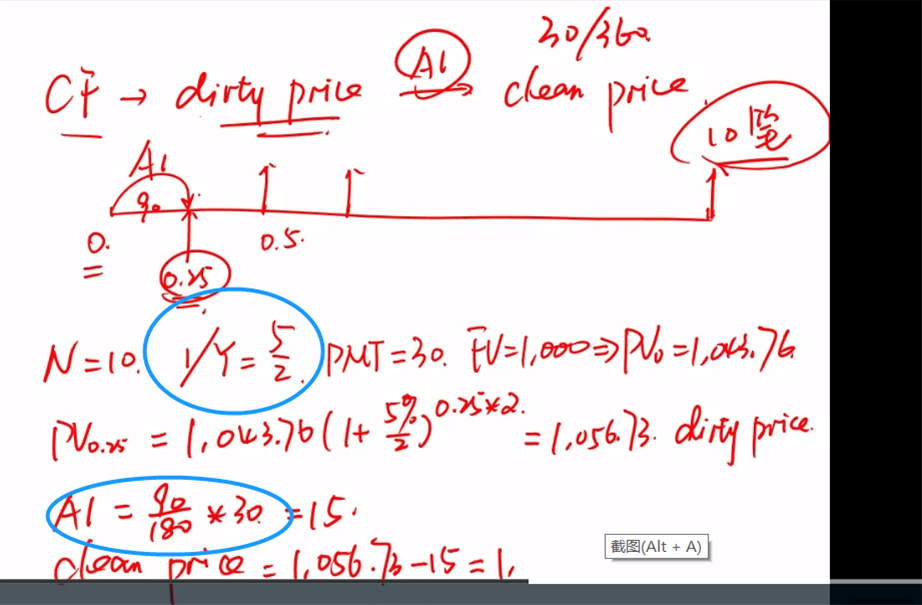 30/360.
CF → dirty price AI → clean price.
10笔
AI
90
0. 0.5.
0.25
N=10. I/Y=5/2. PMT=30. FV=1,000⇒PV₀=1,043.76
PV0.25 = 1,043.76(1+5%/2)^0.25*2. = 1,056.73. dirty price.
AI = 90/180 * 30 = 15.
截图(Alt + A)
clean price = 1,056.73-15=1,